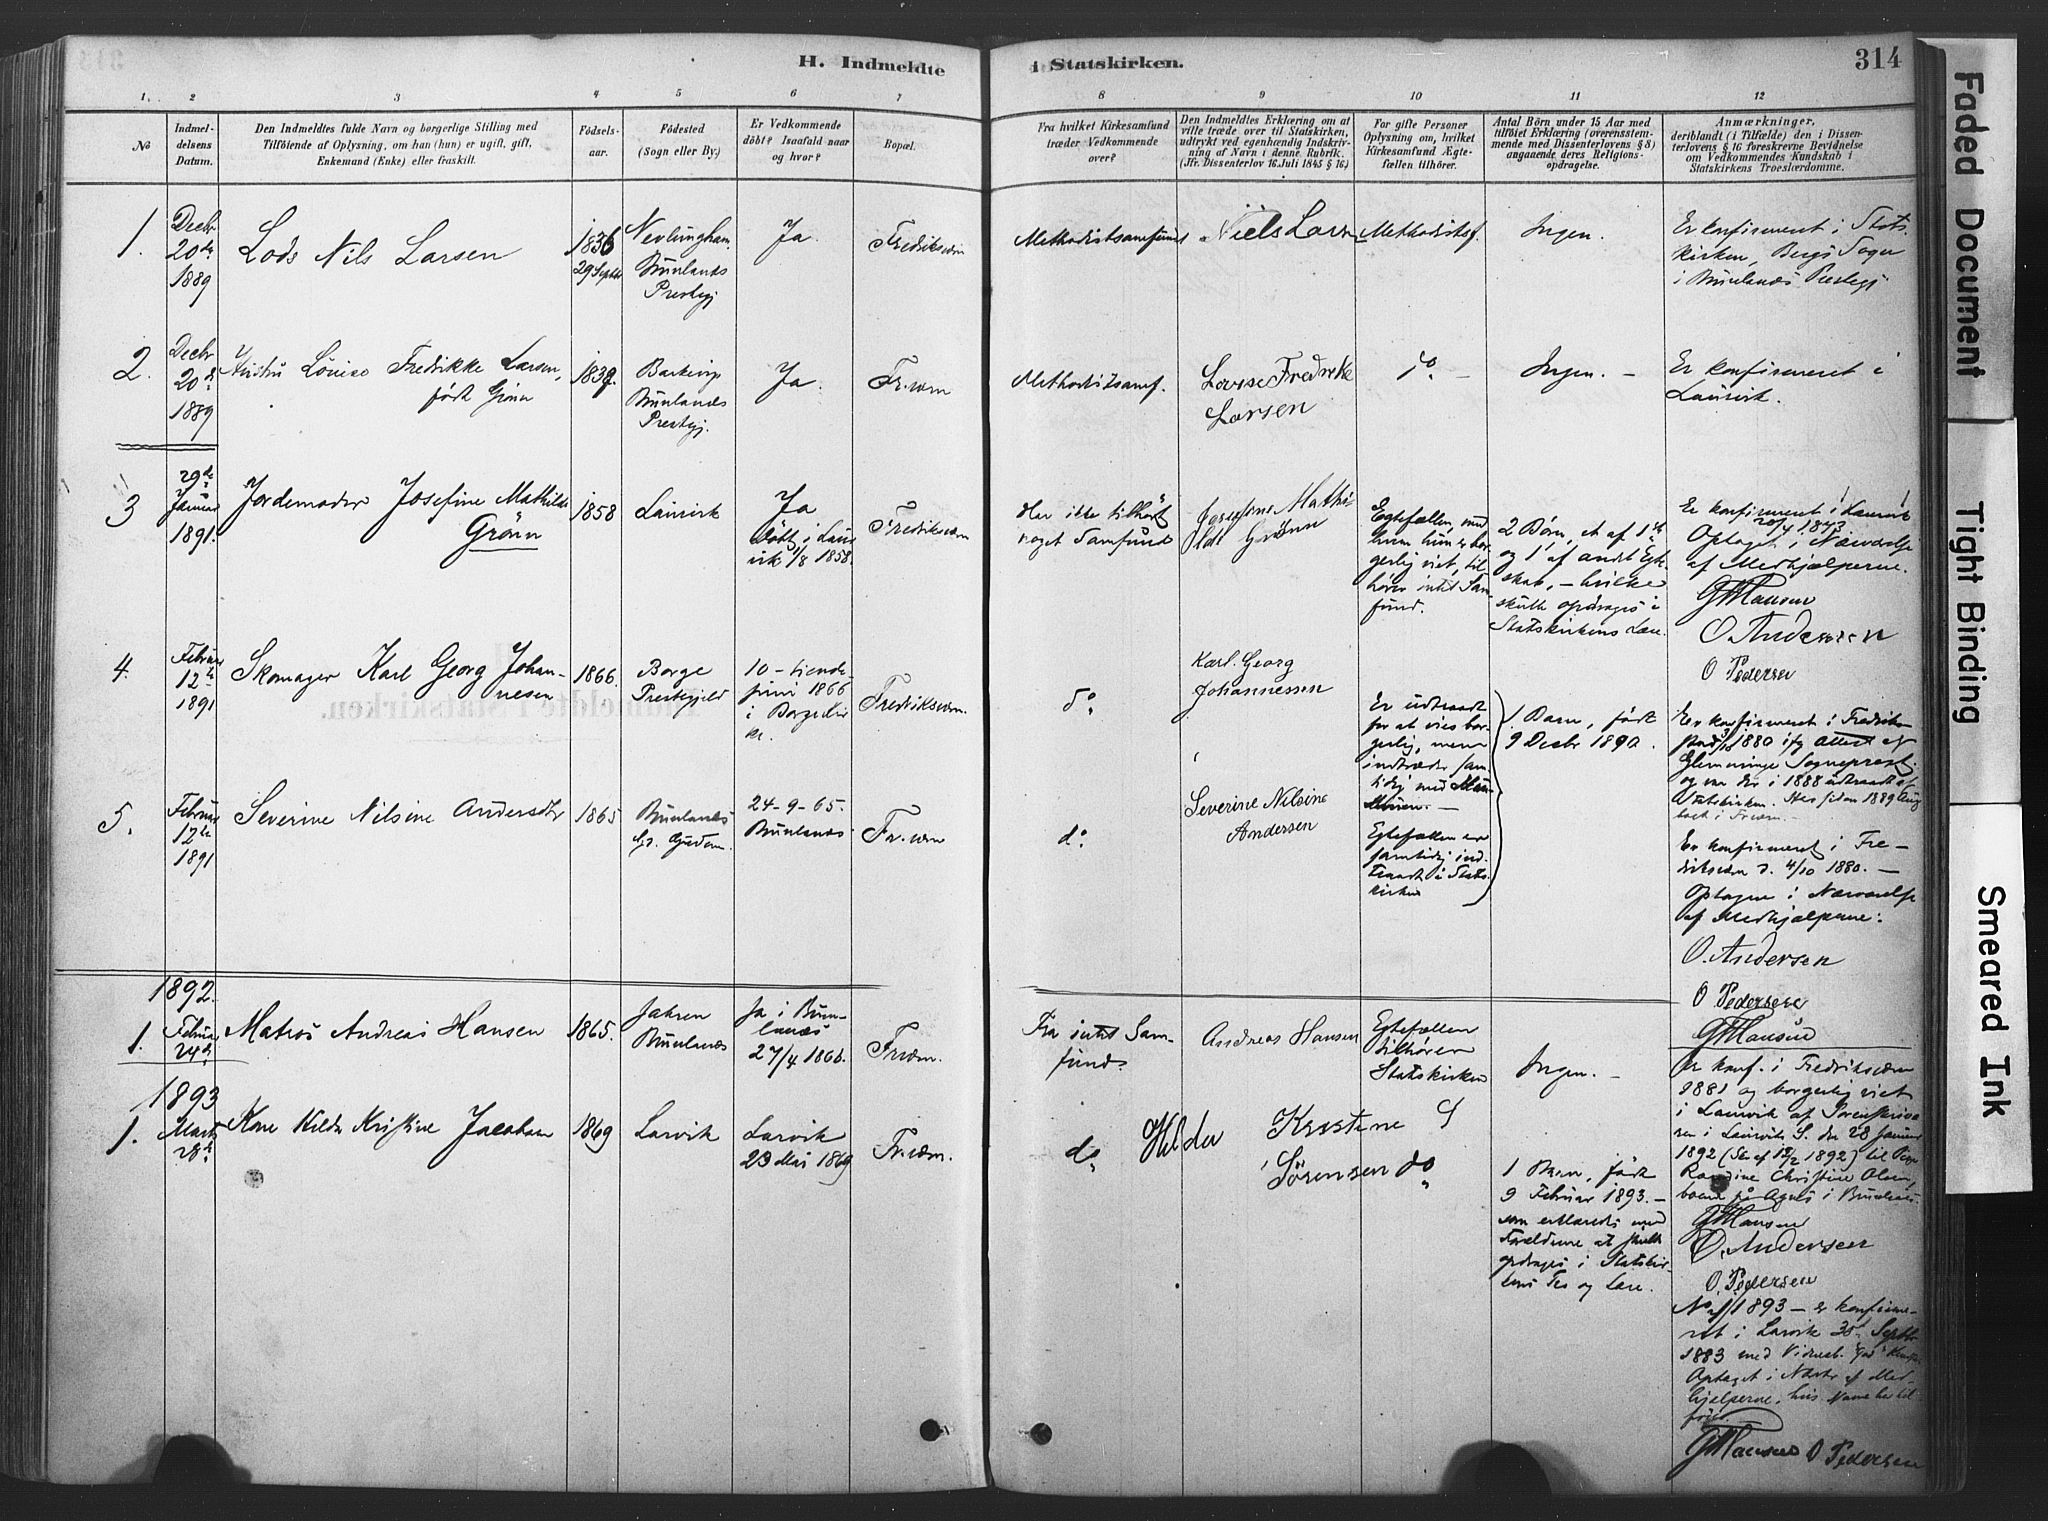 H. Indmeldte
i Statskirken.
314
1.
2
3
4
5
6
7
8
9
10
11
12
No
Indmel-
delsens
Datum.
Den Indmeldtes fulde Navn og borgerlige Stilling med
Tilföiende af Oplysning, om han (hun) er ugift, gift,
Enkemand (Enke) eller fraskilt.
Födsels-
aar.
Födested
(Sogn eller By.)
Er Vedkommende
döbt? Isaafald naar
og hvor?
Bopæl.
Fra hvilket Kirkesamfund
træder Vedkommende
over?
Den Indmeldtes Erklæring om at
ville træde over til Statskirken,
udtrykt ved egenhændig Indskriv-
ning af Navn i denne Rubrik.
(Jfr. Dissenterlov 16 Juli 1845 § 16.)
For gifte Personer
Oplysning om, hvilket
Kirkesamfund Ægte-
fællen tilhörer.
Antal Börn under 15 Aar med
tilföiet Erklæring (overensstem-
mende med Dissenterlovens § 8)
angaaende deres Religions-
opdragelse.
Anmærkninger,
deriblandt (i Tilfælde) den i Dissen-
terlovens § 16 foreskrevne Bevidnelse
om Vedkommendes Kundskab i
Statskirkens Troeslærdomme.
1.
Decbr
20de
1889
Lods Nils Larsen
1836
29 Septbr
Nevlungham.
Brunlanæs
Prestegj
Ja.
Fredriksværn
Methodistsamfund
Niels Larsen
Methodistsf.
Ingen.
Er konfirmeret i Stats-
kirken, Bergs Sogn
i Brunlanæs Prestegj.
2.
Decbr
20de
1889
Hustru Louise Fredrikke Larsen,
født Grönn
1839.
Barkevig
Brunlanæs
Prestegj.
Ja.
Fr.værn
Methodistsamf.
Lovise Fredrekke
Larsen
do. —
Ingen. —
Er konfirmeret i
Laurvik.
3
29de
Januar
1891.
Jordemoder Josefine Mathilde
Grönn
1858
Laurvik
Ja
Döbt i Laur-
vik 1/8 1858.
Fredriksværn
Har ikke tilhørt
noget Samfund
Josefine Mathi-
lde Grönn
Egtefællen, med
hvem hun er bor-
gerlig viet, til-
hører intet Sam-
fund.
2 Børn, et af 1ste
og 1 af andet Egte-
skab, — hvilke
skulle opdrages i
Statskirkens Lære.
Er konfirmeret i Laurvik
20/4 1873
Optaget i Nærværelse
af Medhjælperne.
GHansen
O. Andersen
O Pedersen
4.
Februar
12te
1891
Skomager Karl Georg Johan-
nesen
1866.
Borge
Prestegjeld
10 - tiende
juni 1866
i Borge Kir-
ke.
Fredriksværn.
do.
Karl. Georg
Johannessen
Er udtraadt
for at vies bor-
gerlig, men
indtræder sam-
tidig med
1 Barn, født
9 Decbr 1890.
Er konfirmeret i Fredrik-
stad 3/10 1880 ifg Attest af
Glemminge Sogneprest.
og var der i 1888 udtraadt af
Statskirken. Her siden 1889
boet i Fr.værn —
5.
Februar
12te
1891
Severine Nilsine Andersdtr
1865
Brunlanæs
24 - 9 - 65.
Brunlanæs
Fr.værn
do
Severine Nilsine
Andersen
Egtefællen er
samtidig ind-
traadt i Stats-
kirken
Er konfirmeret i Fre-
driksværn d. 4/10 1880. —
Optagne i Nærværelse
af Medhjælperne:
O. Andersen
O Pedersen
GHansen
1892.
1.
Februar
24de
Matros Andreas Hansen
1865.
Jahren
Brunlanæs
Ja i Brun-
lanæs
27/4 1866.
Fr.værn.
Fra intet Sam-
fund.
Andreas Hansen
Egtefællen
tilhører
Statskirken
Ingen. —
Er konf. i Fredriksværn
1881 og borgerlig viet
i Laurvik af Sorenskrive-
ren i Laurviks S. den 28 Januar
1892 til Pige
Christine Olsen,
boende på Agnes i Brunlanæs.
GHansen
O. Andersen
O. Pedersen
1893
1.
Marts
28de
Kone Hilda Kristine Jacobsen
1869
Larvik
Larvik
23 Mai 1869
Fr.værn.
do
Hilda Kristine
Sörensen
do
1 Barn, født
9 Februar 1893. —
som erklæredes med
Forældrene at skulle
opdrages i Statskir-
kens Tro og Lære.
No 1/1893 — er konfirme-
ret i Larvik 30 Septbr
1883 med Vidnesb.
Optaget i Nærv. af Med-
hjelperne, hvis Navne her til-
føies.
GHansen O Pedersen
Faded Document
Tight Binding
Smeared Ink